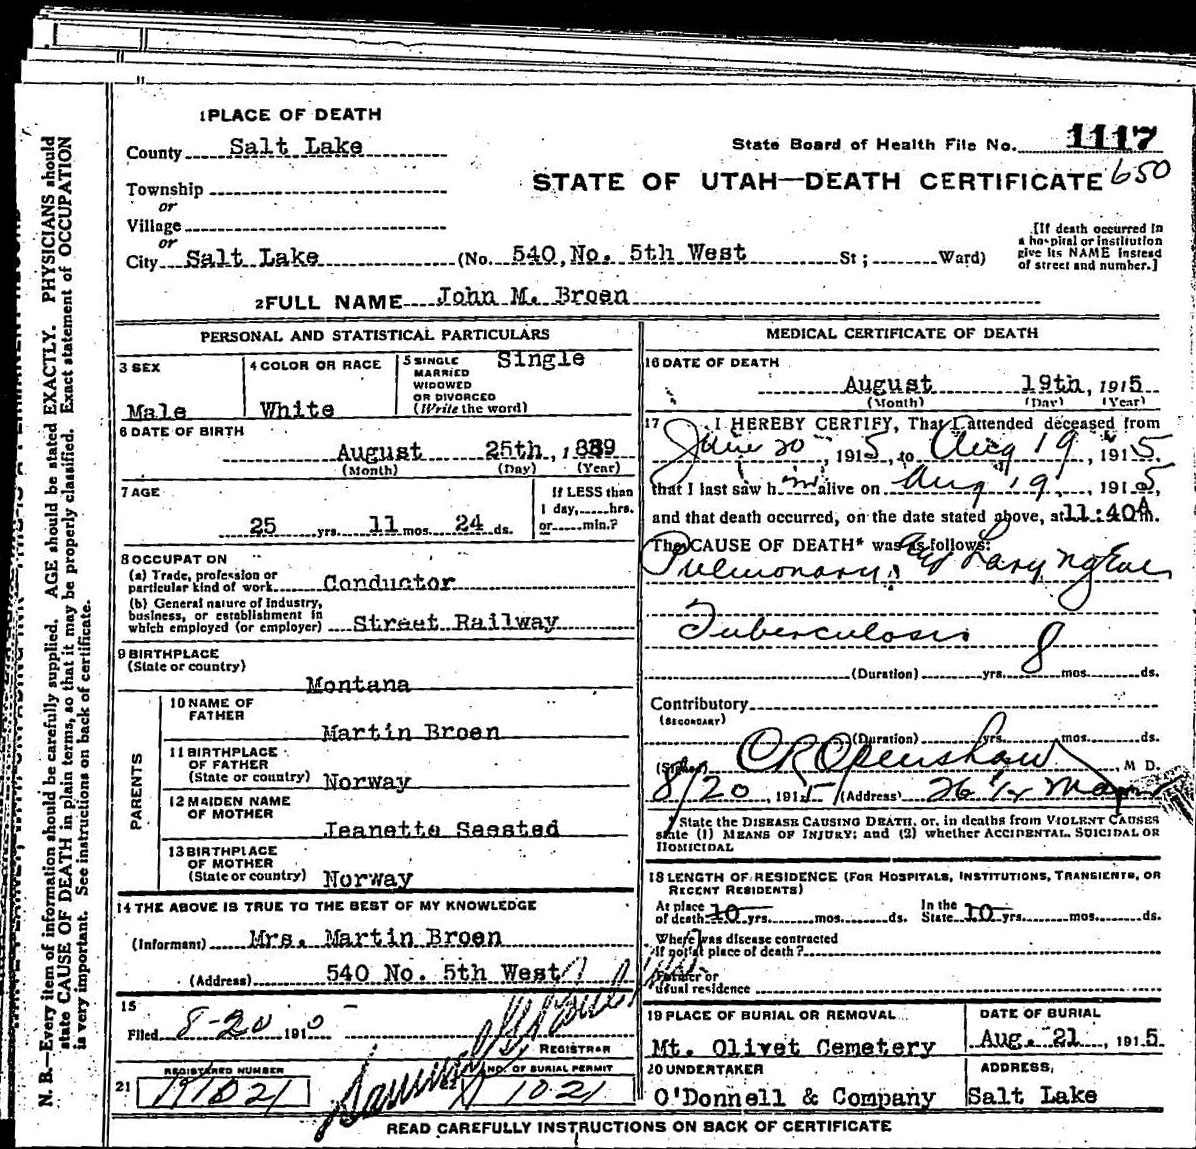 1 PLACE OF DEATH
County Salt Lake
State Board of Health File No. 1117
STATE OF UTAH—DEATH CERTIFICATE 650
Township
or
Village
or
City Salt Lake (No. 540, No. 5th West St; Ward)
[If death occurred in a hospital or institution give its NAME instead of street and number.]
2 FULL NAME John M. Broen
PERSONAL AND STATISTICAL PARTICULARS
3 SEX
Male
4 COLOR OR RACE
White
5 SINGLE MARRIED WIDOWED OR DIVORCED (Write the word)
Single
6 DATE OF BIRTH
August 25th, 1889
(Month) (Day) (Year)
7 AGE
25 yrs. 11 mos. 24 ds.
If LESS than 1 day, hrs. or min.?
8 OCCUPATION
(a) Trade, profession or particular kind of work Conductor
(b) General nature of industry, business, or establishment in which employed (or employer) Street Railway
9 BIRTHPLACE
(State or country)
Montana
PARENTS
10 NAME OF FATHER
Martin Broen
11 BIRTHPLACE OF FATHER
(State or country) Norway
12 MAIDEN NAME OF MOTHER
Jeanette Seested
13 BIRTHPLACE OF MOTHER
(State or country) Norway
14 THE ABOVE IS TRUE TO THE BEST OF MY KNOWLEDGE
(Informant) Mrs. Martin Broen
(Address) 540 No. 5th West
15
Filed 8-20 191
REGISTRAR
21 REGISTERED NUMBER
NO. OF BURIAL PERMIT
1021
MEDICAL CERTIFICATE OF DEATH
16 DATE OF DEATH
August 19th, 1915
(Month) (Day) (Year)
17 I HEREBY CERTIFY, That I attended deceased from
June 20, 1915, to Aug 19, 1915.
that I last saw him alive on Aug 19, 1915,
and that death occurred, on the date stated above, at 11:40A m.
The CAUSE OF DEATH* was as follows:
Pulmonary, and Laryngeal
Tuberculosis
(Duration) yrs. 8 mos. ds.
Contributory
(SECONDARY)
(Duration) yrs. mos. ds.
(Signed) C R Openshaw, M D.
8/20, 1915 (Address) 26 1/2 Main
* State the DISEASE CAUSING DEATH, or, in deaths from VIOLENT CAUSES
state (1) MEANS OF INJURY; and (2) whether ACCIDENTAL, SUICIDAL OR
HOMICIDAL
18 LENGTH OF RESIDENCE (FOR HOSPITALS, INSTITUTIONS, TRANSIENTS, OR
RECENT RESIDENTS)
At place of death 10 yrs. mos. ds. In the State 10 yrs. mos. ds.
Where was disease contracted
If not at place of death?
Former or
usual residence
19 PLACE OF BURIAL OR REMOVAL
Mt. Olivet Cemetery
DATE OF BURIAL
Aug. 21, 1915
20 UNDERTAKER
O'Donnell & Company
ADDRESS,
Salt Lake
READ CAREFULLY INSTRUCTIONS ON BACK OF CERTIFICATE
N. B.—Every item of information should be carefully supplied. AGE should be stated EXACTLY. PHYSICIANS should
state CAUSE OF DEATH in plain terms, so that it may be properly classified. Exact statement of OCCUPATION
is very important. See instructions on back of certificate.